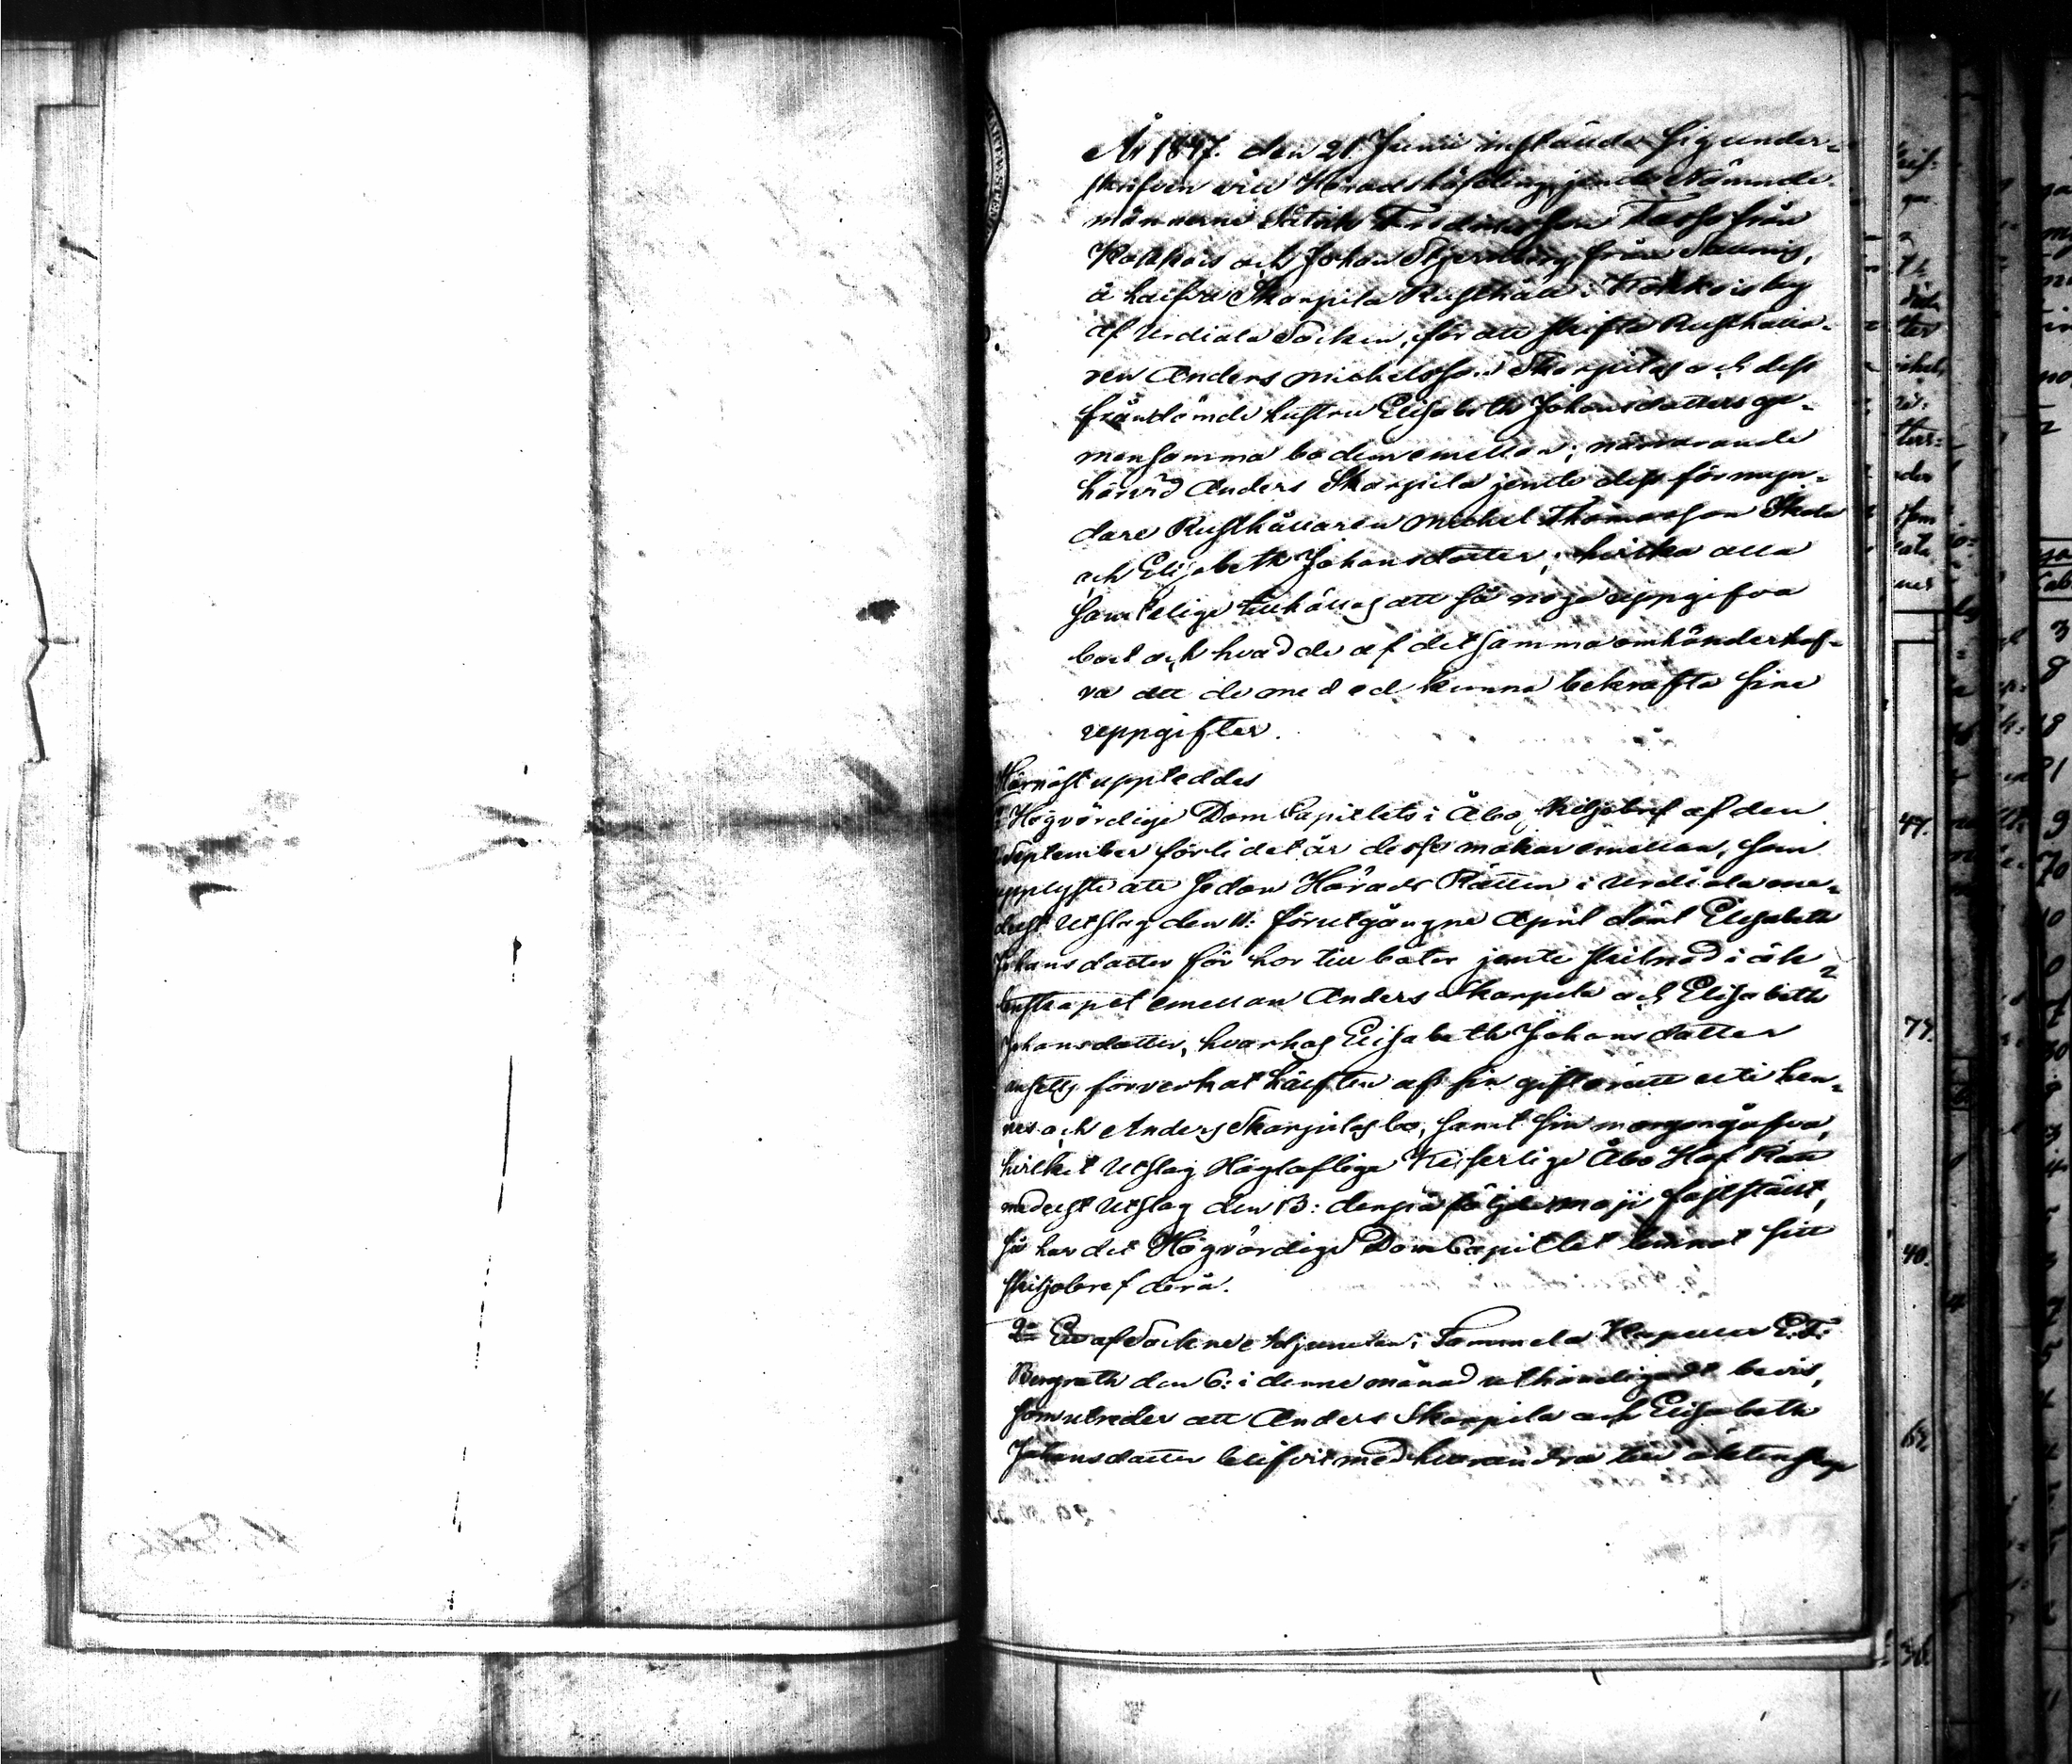 År 1847. den 21 Junii instäude sig under-
skrifven vice Häradshöfding jemte Nämnde-
männerne Patrik Fredriksson Tasso från
Kokkois och Johan Stjernberg från Nauris,
å halfva Skarpila Rusthåll i Kokkois by
af Urdiala Socken, för att skifta Rusthålla-
ren Anders Michelsson Skarpilas och dess
frånskömde hustru Elisabeth Johansdotters ge-
mensamma bo dem emellan; närvarande
härvid Anders Skarpila jemte dess förmyn-
dare Rusthållaren Michel Thomasson Skala
och Elisabeth Johansdotter; hvilka alla
samtelige tillhållas att så noga uppgifva
boet och hvad de af detsamma omhänderhaf-
va att de med ed kunna bekräfta sine
uppgifter.
Härnäst uppleddes
Högvördige Dom Capitlets i Åbo skiljobref af den
September förlidet år desse makar emellan, som
upplyste att sedan Härads Rätten i Urdiala me-
delst Utslag den 11: förutgångne April dömt Elisabeth
Johansdotter för hor till böter jemte skilnad i äk-
tenskapet emellan Anders Skarpila och Elisabeth
Johansdotter, hvarhos Elisabeth Johansdotter
ansetts förverkat hälften af sin giftorätt uti hen-
nes och Anders Skarpilas bo, samt sin morgongåfva,
hvilket Utslag Höglofliga Keiserliga Åbo Hof Rätt
medelst Utslag den 13: derpåföljde Maji fastställt,
så har det Högvördige Dom Capitlet lemnat sitt
skiljobref derå.
2o Ett af Sockne Adjuncten i Tammela Kapell E. F.
Bergroth den 6: i denne månad uthändigadt bevis,
som utreder att Anders Skarpila och Elisabeth
Johansdotter blifvit med hvarandra till äktenskap